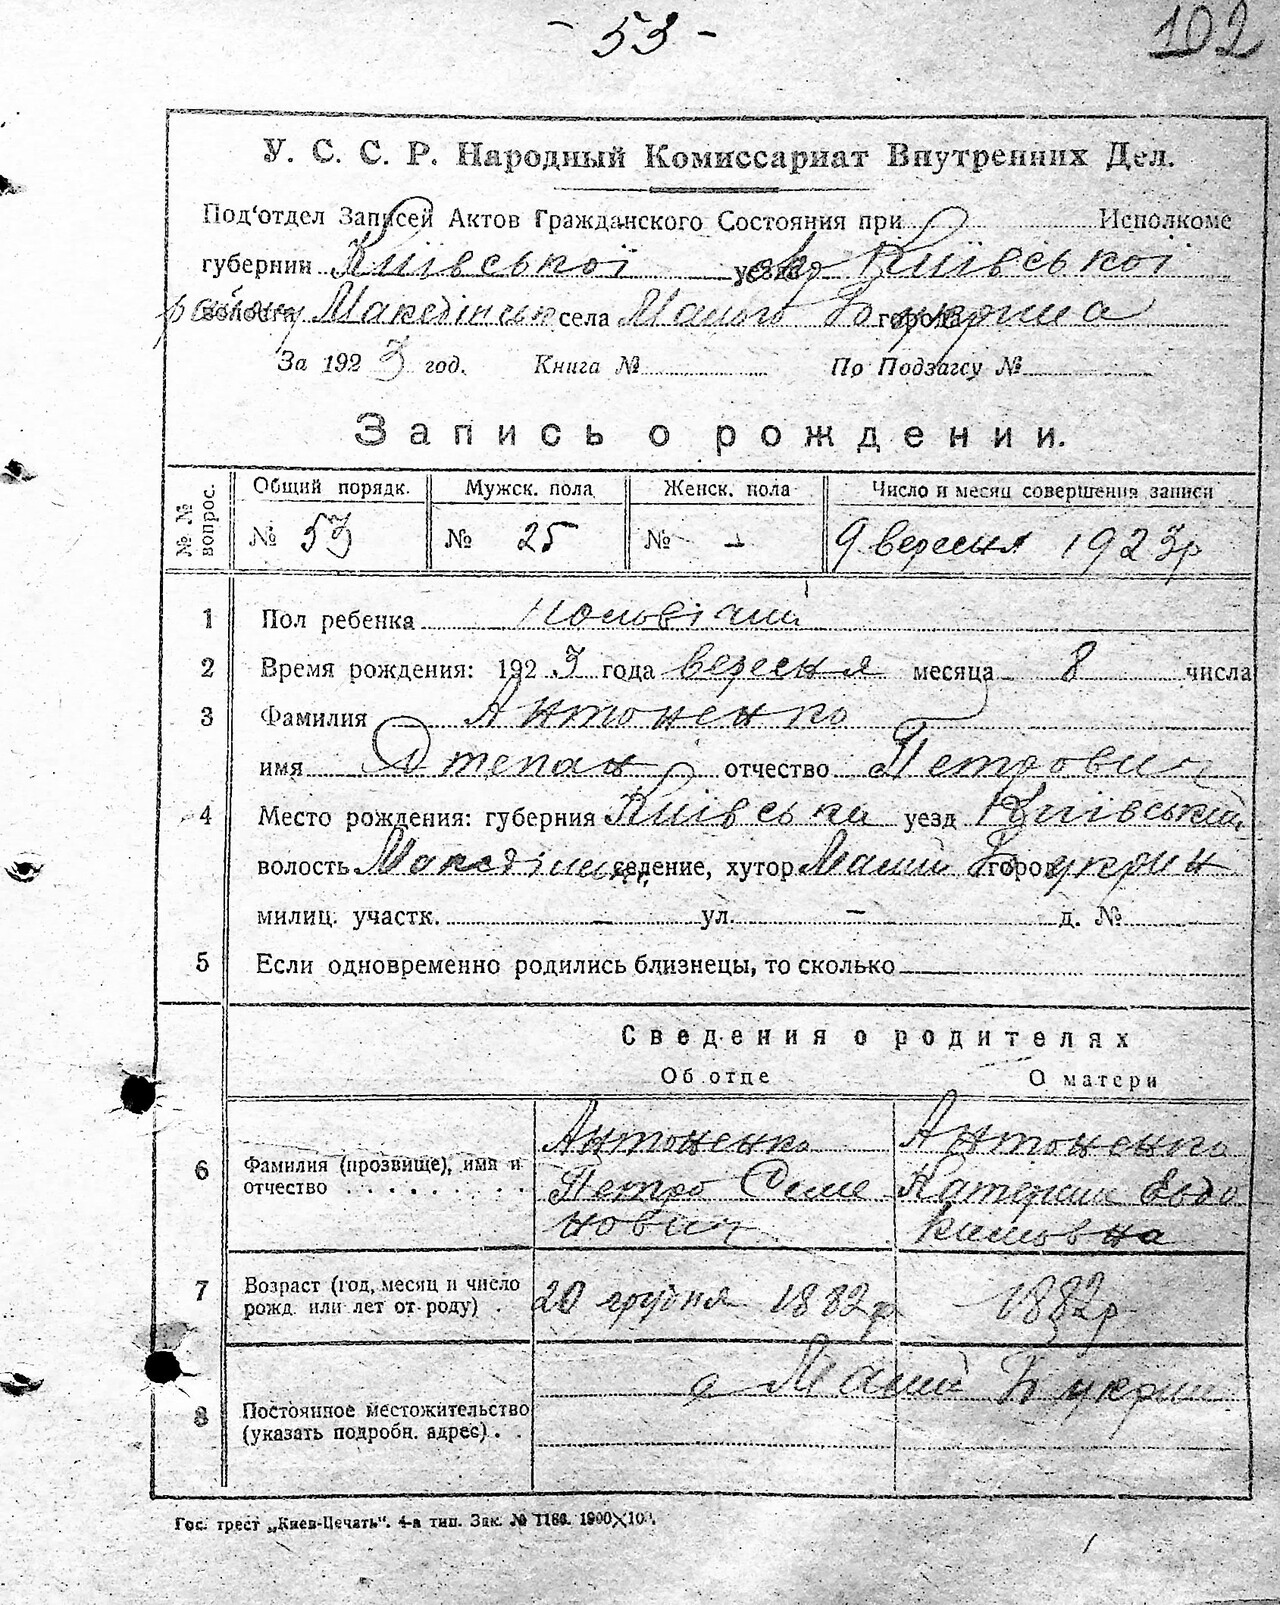 - 53 -
102
У. С. С. Р. Народный Комиссариат Внутренних Дел.
Под‘отдел Записей Актов Гражданского Состояния при Исполкоме
губернии Київської Київської
району волости села Малого Букрина
За 1923 год. Книга № По Подзагсу №
Запись о рождении.
№ № вопрос.
Общий порядк. Мужск. пола Женск. пола Число и месяц совершения записи
№ 53 № 25 № - 9 вересня 1923р
1 Пол ребенка чоловічий
2 Время рождения: 1923 года вересня месяца 8 числа
3 Фамилия Антоненко
имя Степан отчество Петрович
4 Место рождения: губерния Київська уезд Київський
волость селение, хутор Малий Букрин город
милиц. участк. — ул. — д. №
5 Если одновременно родились близнецы, то сколько
Сведения о родителях
Об отце О матери
6 Фамилия (прозвище), имя и отчество
Антоненко Антоненко
Петро Семе Катерина Евдо
нович кимовна
7 Возраст (год, месяц и число рожд. или лет от роду) .
20 грудня 1882р 1882р
8 Постоянное местожительство (указать подробн. адрес) . .
с Малий Букрин
Гос. трест „Киев-Печать“. 4-я тип. Зак. № 1186. 1900×100.